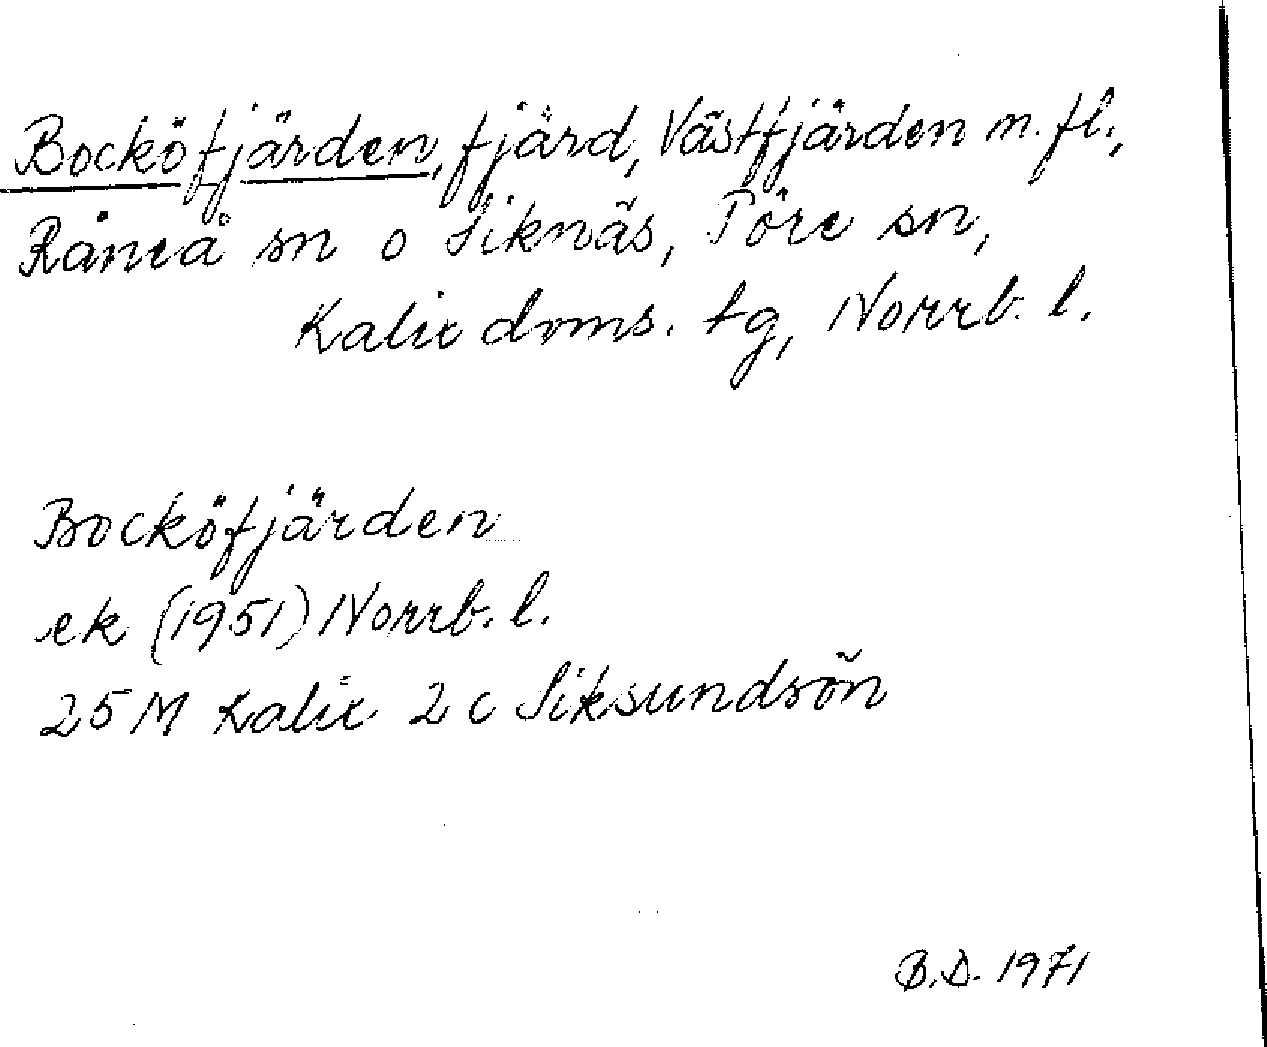 Bocköfjärden, fjärd, Västfjärden m. fl.,
Råneå sn o Siknäs, Töre sn,
Kalix doms. tg, Norrb. l.
Bocköfjärden
ek (1951) Norrb. l.
25 M Kalix 2 c Siksundsön
B.D. 1971